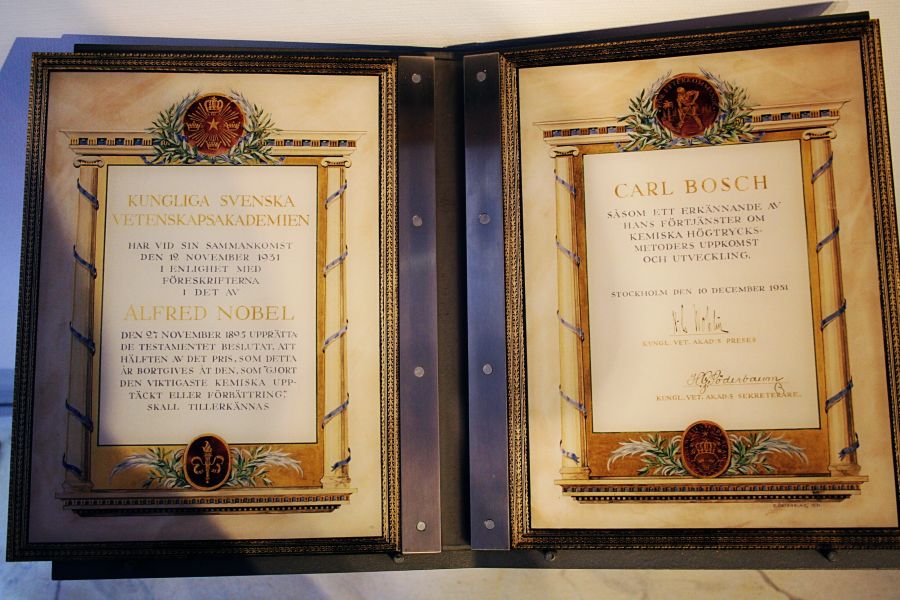 KUNGLIGA SVENSKA
VETENSKAPSAKADEMIEN
HAR VID SIN SAMMANKOMST
DEN 12 NOVEMBER 1931
I ENLIGHET MED
FÖRESKRIFTERNA
I DET AV
ALFRED NOBEL
DEN 27 NOVEMBER 1895 UPPRÄTTA-
DE TESTAMENTET BESLUTAT, ATT
HÄLFTEN AV DET PRIS, SOM DETTA
ÅR BORTGIVES ÅT DEN, SOM "GJORT
DEN VIKTIGASTE KEMISKA UPP-
TÄCKT ELLER FÖRBÄTTRING",
SKALL TILLERKÄNNAS
CARL BOSCH
SÅSOM ETT ERKÄNNANDE AV
HANS FÖRTJÄNSTER OM
KEMISKA HÖGTRYCKS-
METODERS UPPKOMST
OCH UTVECKLING.
STOCKHOLM DEN 10 DECEMBER 1931
KUNGL. VET. AKAD:S PRESES
HG Söderbaum
KUNGL. VET. AKAD:S SEKRETERARE.